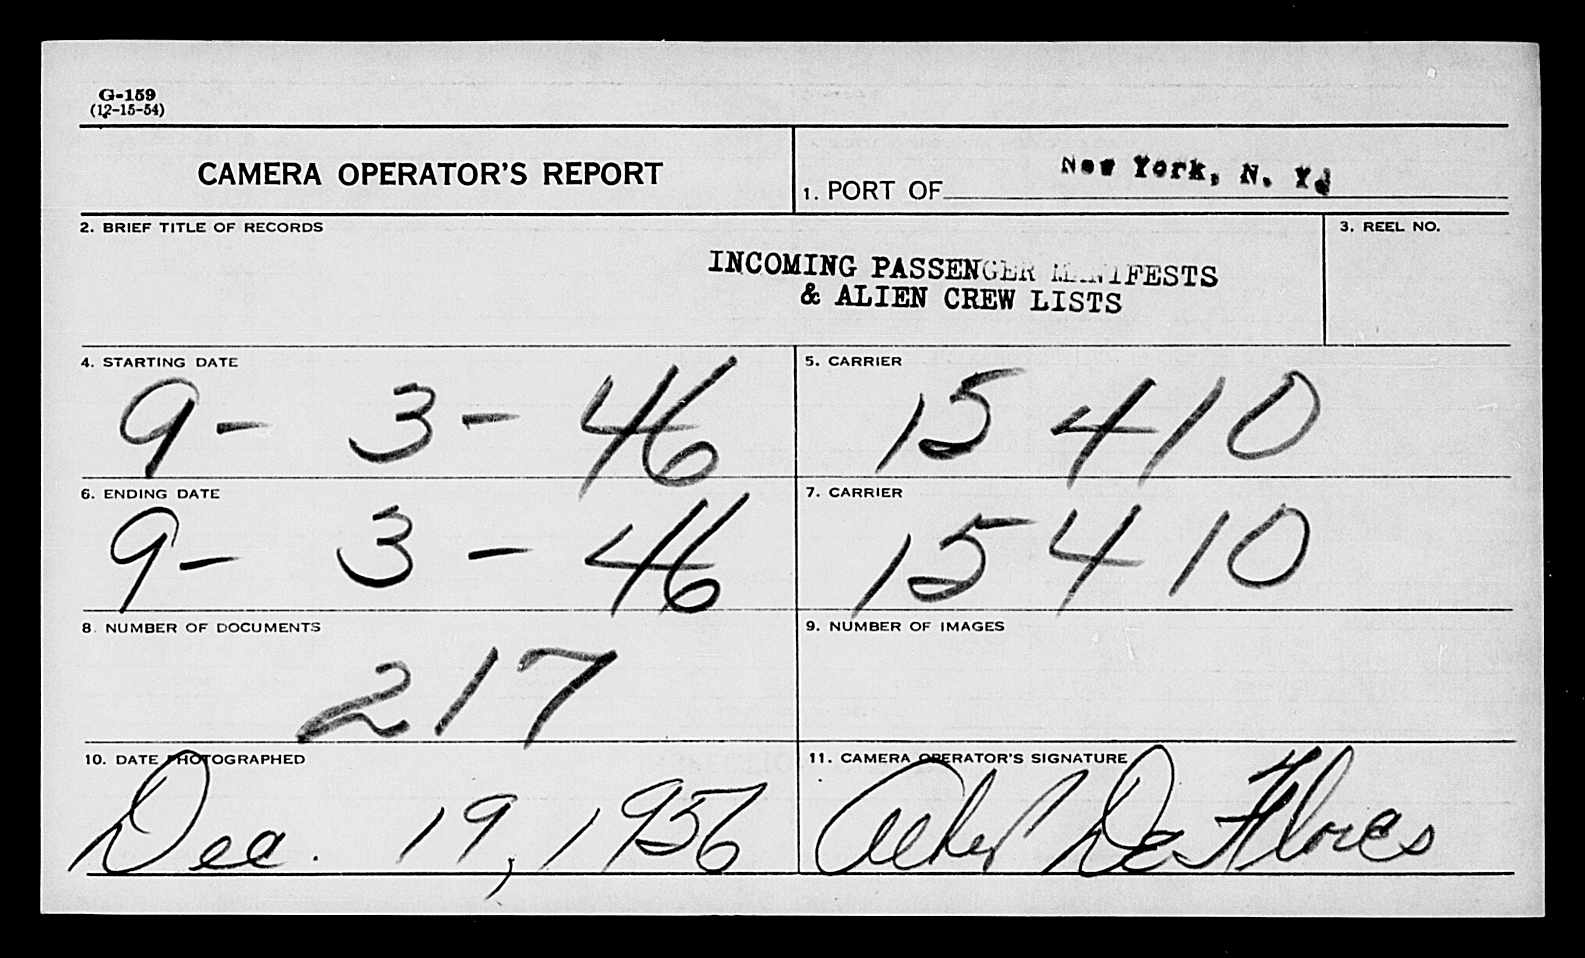 G-159
(12-15-54)
CAMERA OPERATOR'S REPORT
1. PORT OF New York, N. Y.
2. BRIEF TITLE OF RECORDS
3. REEL NO.
INCOMING PASSENGER MANIFESTS
& ALIEN CREW LISTS
4. STARTING DATE
9- 3-46
5. CARRIER
15410
6. ENDING DATE
9- 3-46
7. CARRIER
15410
8. NUMBER OF DOCUMENTS
217
9. NUMBER OF IMAGES
10. DATE PHOTOGRAPHED
Dec. 19, 1956
11. CAMERA OPERATOR'S SIGNATURE
De Flores